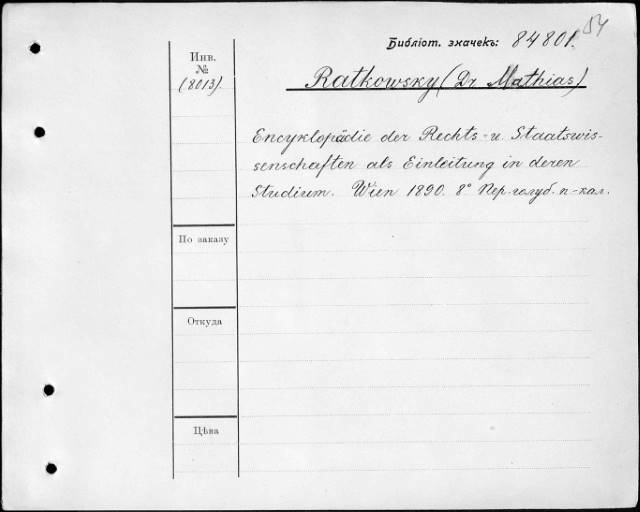 54
Библіот. значекъ: 84801.
Инв.
№
(8013).
Ratkowsky (Dr Mathias)
Encyklopädie der Rechts- u. Staatswis-
senschaften als Einleitung in deren
Studium. Wien 1890. 8° Пер. голуб. п-кал.
По заказу
Откуда
Цѣна